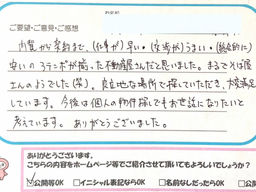 ご要望・ご意見・ご感想
内覧から契約まで、(仕事が)早い・(交渉が)うまい・(総合的に)
安いの3テンポが揃った不動産屋さんだと思いました。まるでそば屋
さんのようでした(笑)。好立地な場所で探していただき、大変満足
しています。今後は個人の物件探しでもお世話になりたいと
考えています。ありがとうございました。
ありがとうございます。
こちらの内容をホームページ等でご紹介させて頂いてもよろしいでしょうか?
公開等OK □イニシャル表記ならOK □名前なしだったらOK